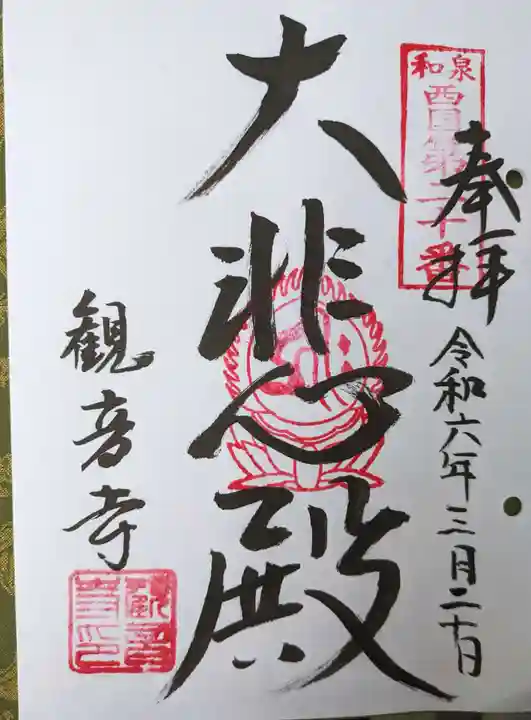 和泉
西国第二十番
奉拝
令和六年三月二十日
大悲殿
観音寺